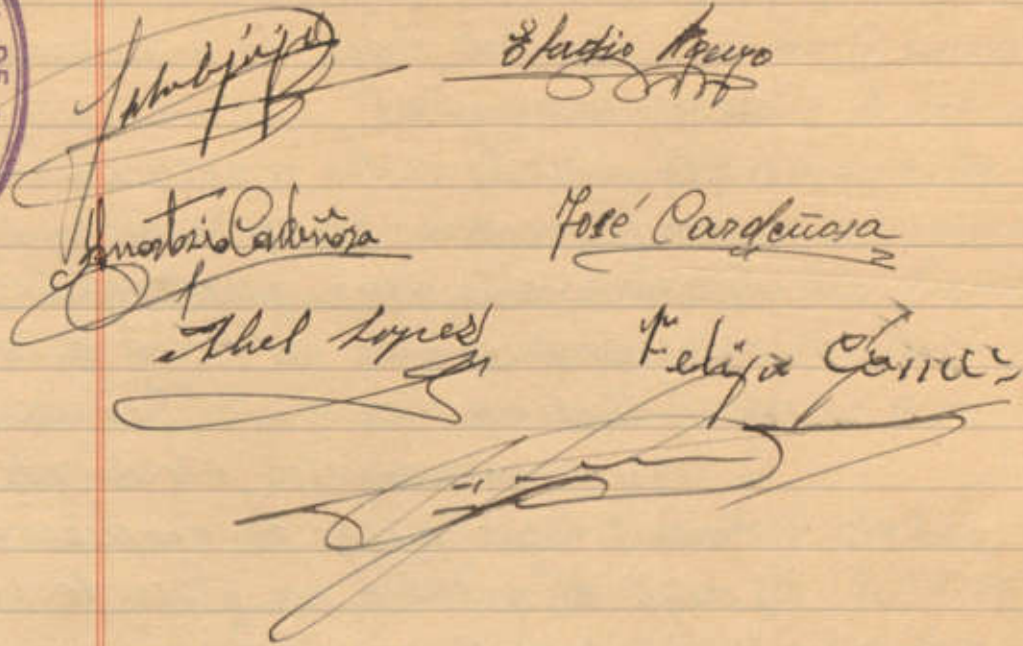 Eladio Aguyo
Anastasio Cardeñosa
José Cardeñosa
Abel Lopes
Felipe
DE